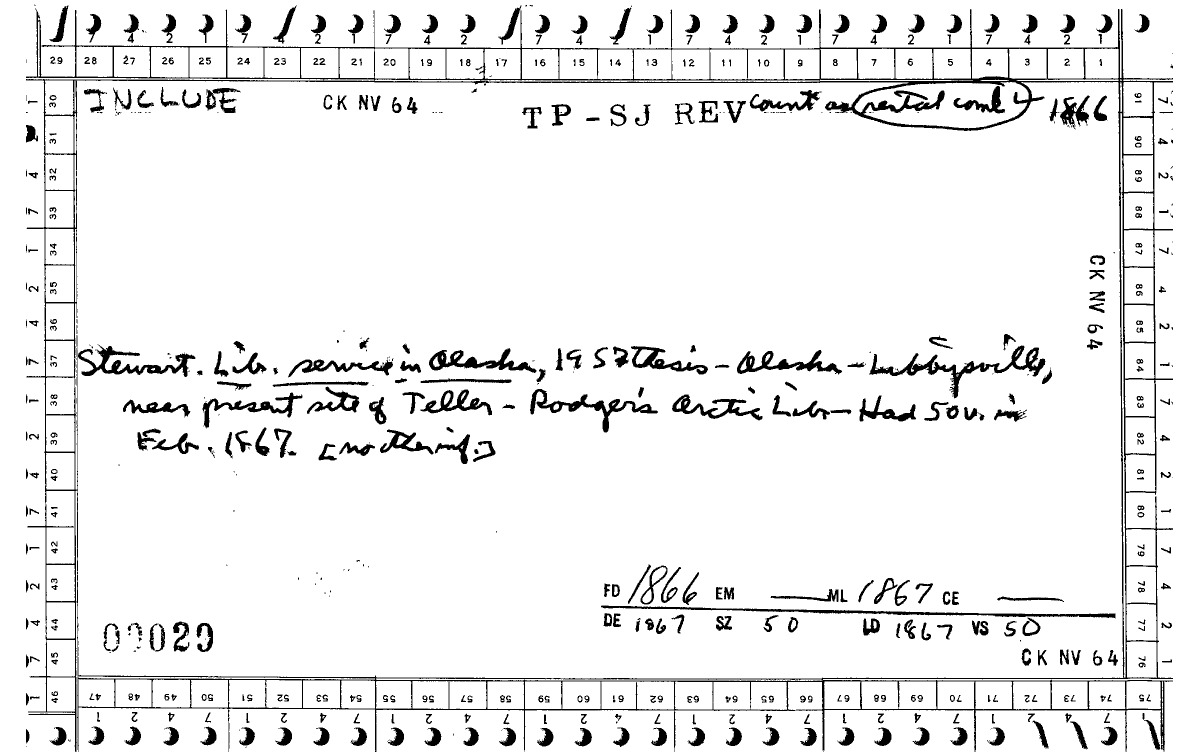 7 4 2 1 7 4 2 1 7 4 2 1 7 4 2 1 7 4 2 1 7 4 2 1 7 4 2 1
29 28 27 26 25 24 23 22 21 20 19 18 17 16 15 14 13 12 11 10 9 8 7 6 5 4 3 2 1
INCLUDE CK NV 64 TP-SJ REV count as rental coml 1866
Stewart. Lib. service in Alaska, 1957 thesis - Alaska - Libbysville,
near present site of Teller - Rodger's Arctic Lib - Had 50 v. in
Feb. 1867. [no other inf.]
FD 1866 EM — ML 1867 CE —
DE 1867 SZ 50 LD 1867 VS 50
00029
CK NV 64
CK NV 64
30 31 32 33 34 35 36 37 38 39 40 41 42 43 44 45 46
91 90 89 88 87 86 85 84 83 82 81 80 79 78 77 76
47 48 49 50 51 52 53 54 55 56 57 58 59 60 61 62 63 64 65 66 67 68 69 70 71 72 73 74 75
1 2 4 7 1 2 4 7 1 2 4 7 1 2 4 7 1 2 4 7 1 2 4 7 1 2 4 7